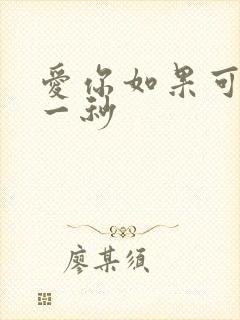 爱你如果可
一秒
廖某须